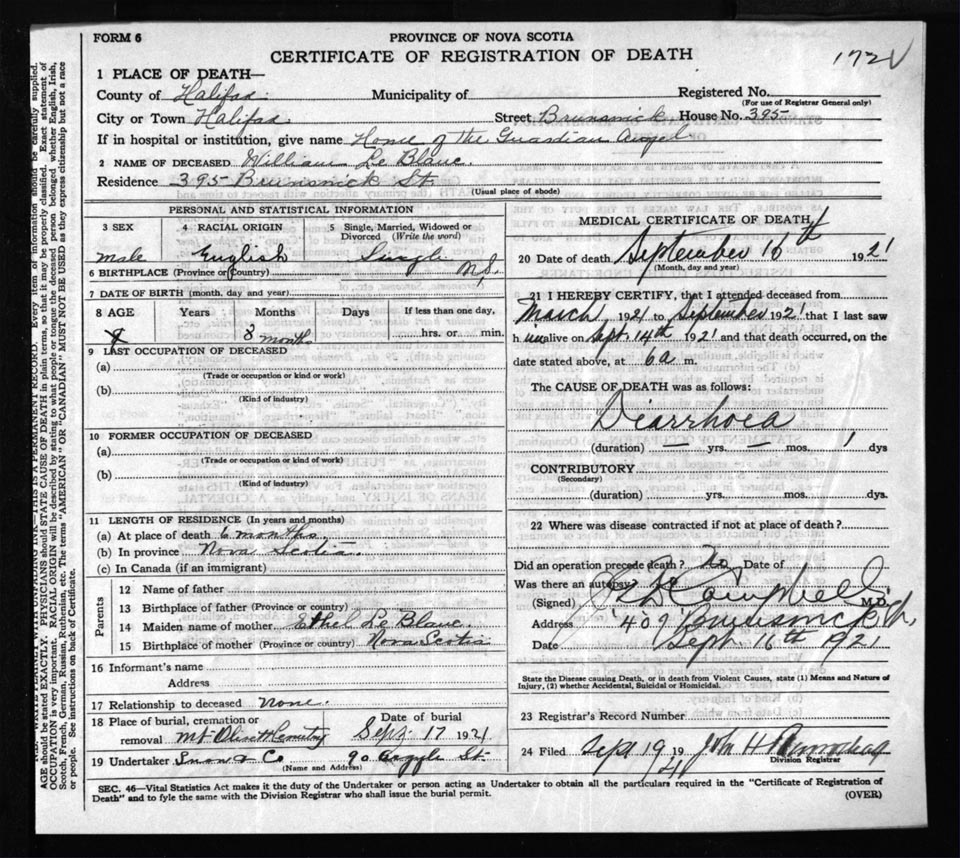 FORM 6
PROVINCE OF NOVA SCOTIA
CERTIFICATE OF REGISTRATION OF DEATH
172
1 PLACE OF DEATH—
County of Halifax. Municipality of Registered No.
(For use of Registrar General only)
City or Town Halifax Street Brunswick House No. 395
If in hospital or institution, give name Home of the Guardian Angel
2 NAME OF DECEASED William Le Blanc.
Residence 395 Brunswick St.
(Usual place of abode)
PERSONAL AND STATISTICAL INFORMATION
3 SEX 4 RACIAL ORIGIN 5 Single, Married, Widowed or Divorced (Write the word)
male English Single
6 BIRTHPLACE (Province or Country) N.S.
7 DATE OF BIRTH (month, day and year)
8 AGE Years Months Days If less than one day,
8 months hrs. or min.
9 LAST OCCUPATION OF DECEASED
(a)
(Trade or occupation or kind or work)
(b)
(Kind of industry)
10 FORMER OCCUPATION OF DECEASED
(a)
(Trade or occupation or kind of work)
(b)
(Kind of industry)
11 LENGTH OF RESIDENCE (In years and months)
(a) At place of death 6 months.
(b) In province Nova Scotia.
(c) In Canada (if an immigrant)
Parents
12 Name of father
13 Birthplace of father (Province or country)
14 Maiden name of mother Ethel Le Blanc.
15 Birthplace of mother (Province or country) Nova Scotia
16 Informant's name
Address
17 Relationship to deceased none.
18 Place of burial, cremation or removal Mt Olivett Cemetery Date of burial Sept. 17 1921
19 Undertaker Snow & Co 90 Argyle St.
(Name and Address)
MEDICAL CERTIFICATE OF DEATH
20 Date of death September 16th 1921
(Month, day and year)
21 I HEREBY CERTIFY, that I attended deceased from
March 1921 to September 1921 that I last saw
him alive on Sept. 14th 1921 and that death occurred, on the
date stated above, at 6 a m.
The CAUSE OF DEATH was as follows:
Diarrhoea
(duration) yrs. mos. 1 dys
CONTRIBUTORY
(Secondary)
(duration) yrs. mos. dys.
22 Where was disease contracted if not at place of death?
Did an operation precede death? No Date of
Was there an autopsy
(Signed) Campbell M.D.
Address 407 Brunswick St.
Date Sept. 16th 1921
State the Disease causing Death, or in death from Violent Causes, state (1) Means and Nature of
Injury, (2) whether Accidental, Suicidal or Homicidal.
23 Registrar's Record Number
24 Filed Sept 19 19 21 John H
Division Registrar
SEC. 46—Vital Statistics Act makes it the duty of the Undertaker or person acting as Undertaker to obtain all the particulars required in the "Certificate of Registration of
Death" and to fyle the same with the Division Registrar who shall issue the burial permit.
(OVER)
WRITE PLAINLY WITH UNFADING INK—THIS IS A PERMANENT RECORD. Every item of information should be carefully supplied.
AGE should be stated EXACTLY. PHYSICIANS should STATE CAUSE OF DEATH in plain terms, so that it may be properly classified. Exact statement of
OCCUPATION is very important. RACIAL ORIGIN will be described by stating to what people or tongue the deceased person belonged whether English, Irish,
Scotch, French, German, Russian, Ruthenian, etc. The terms "AMERICAN" OR "CANADIAN" MUST NOT BE USED as they express citizenship but not a race
or people. See instructions on back of Certificate.